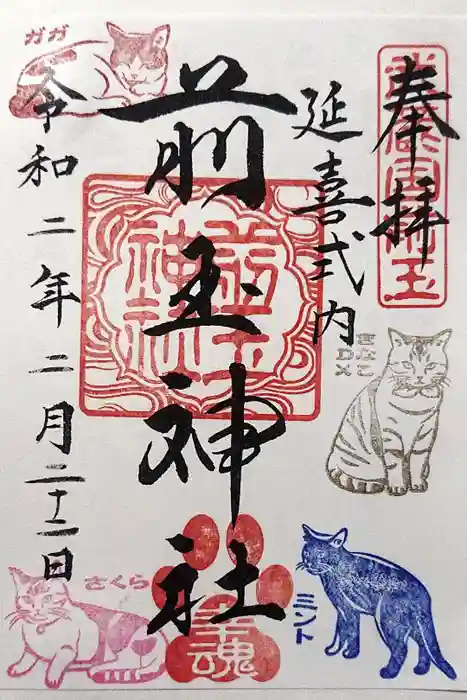 奉拝
武蔵国埼玉
延喜式内
前玉神社
前玉神社
幸魂
令和二年二月二十二日
ガガ
きなこ
DX
さくら
ミント